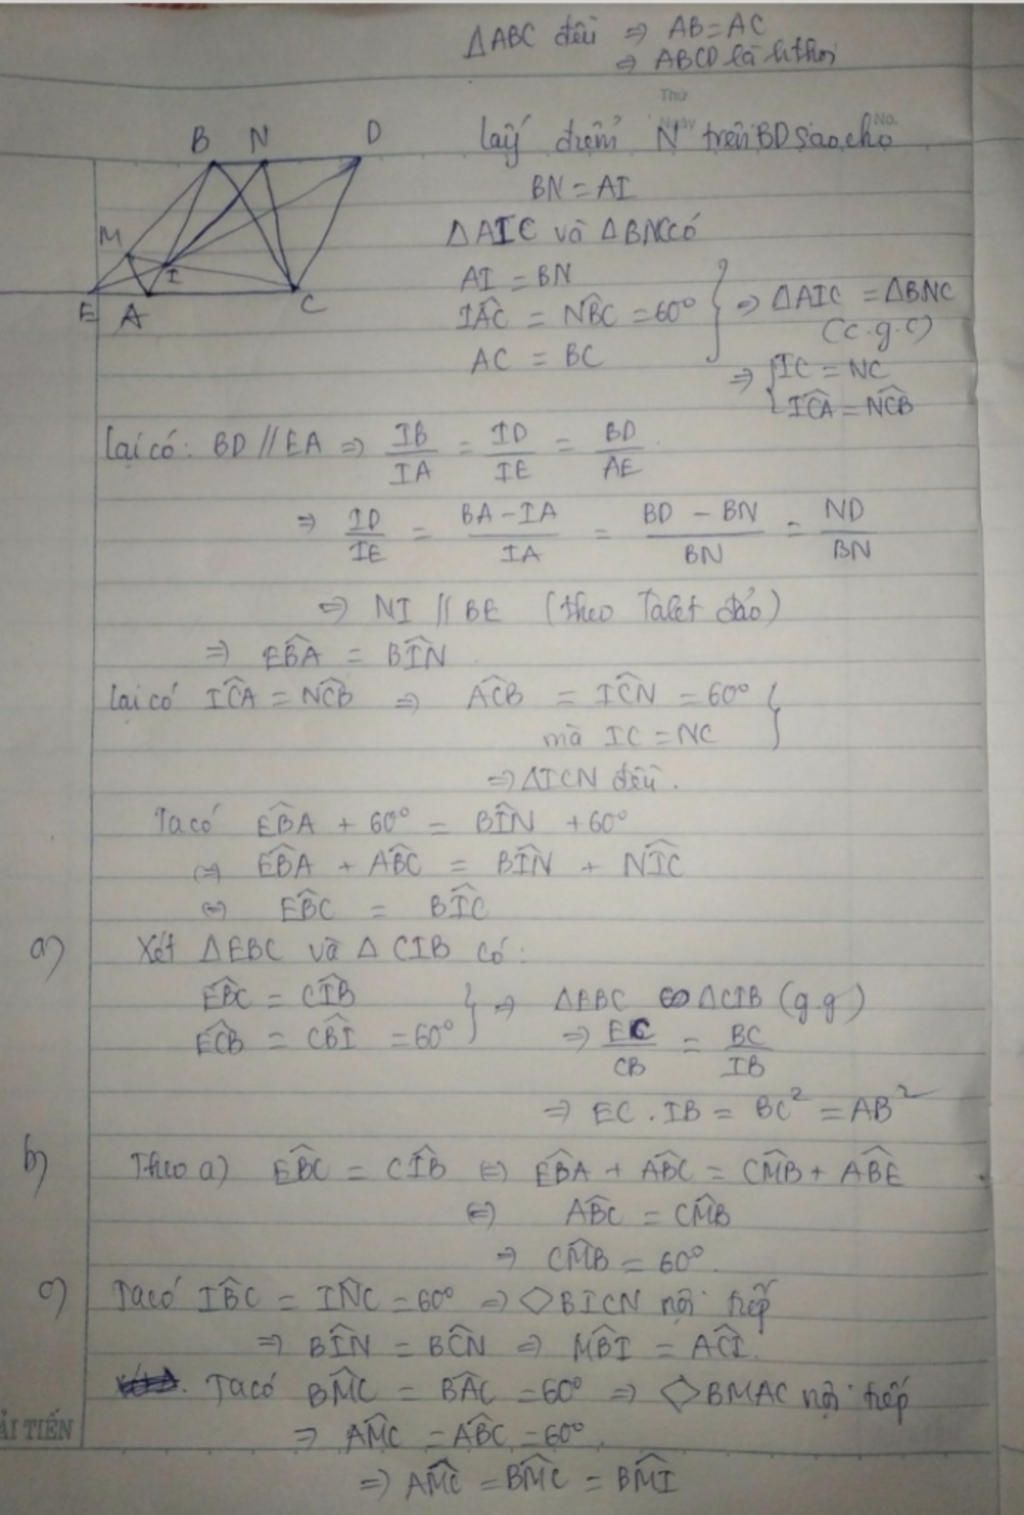 ΔABC đều ⇒ AB = AC
⇒ ABCD là hthoi
Thứ
Ngày No.
B N D
M
I
E A C
lấy điểm N trên BD sao cho
BN = AI
ΔAIC và ΔBNC có
AI = BN
IÂC = NB̂C = 60° } ⇒ ΔAIC = ΔBNC
(c.g.c)
AC = BC
⇒ { IC = NC
IĈA = NĈB
Lại có: BD // EA ⇒ IB/IA = ID/IE = BD/AE
⇒ ID/IE = (BA - IA)/IA = (BD - BN)/BN = ND/BN
⇒ NI // BE (theo Talet đảo)
⇒ EB̂A = BÎN
Lại có IĈA = NĈB ⇒ AĈB = IĈN = 60° }
mà IC = NC
⇒ ΔICN đều.
Ta có EB̂A + 60° = BÎN + 60°
⇔ EB̂A + AB̂C = BÎN + NÎC
⇔ EB̂C = BÎC
a) Xét ΔEBC và ΔCIB có:
EB̂C = CÎB } ⇒ ΔEBC ∽ ΔCIB (g.g)
EĈB = CB̂I = 60° ⇒ EC/CB = BC/IB
⇒ EC . IB = BC² = AB²
b) Theo a) EB̂C = CÎB ⇔ EB̂A + AB̂C = CM̂B + AB̂E
⇔ AB̂C = CM̂B
⇒ CM̂B = 60°.
c) Ta có IB̂C = IN̂C = 60° ⇒ ◇BICN nội tiếp
⇒ BÎN = BĈN ⇒ MB̂I = AĈI.
Ta có BM̂C = BÂC = 60° ⇒ ◇BMAC nội tiếp
⇒ AM̂C = AB̂C = 60°.
⇒ AM̂C = BM̂C = BM̂I
ẢI TIẾN